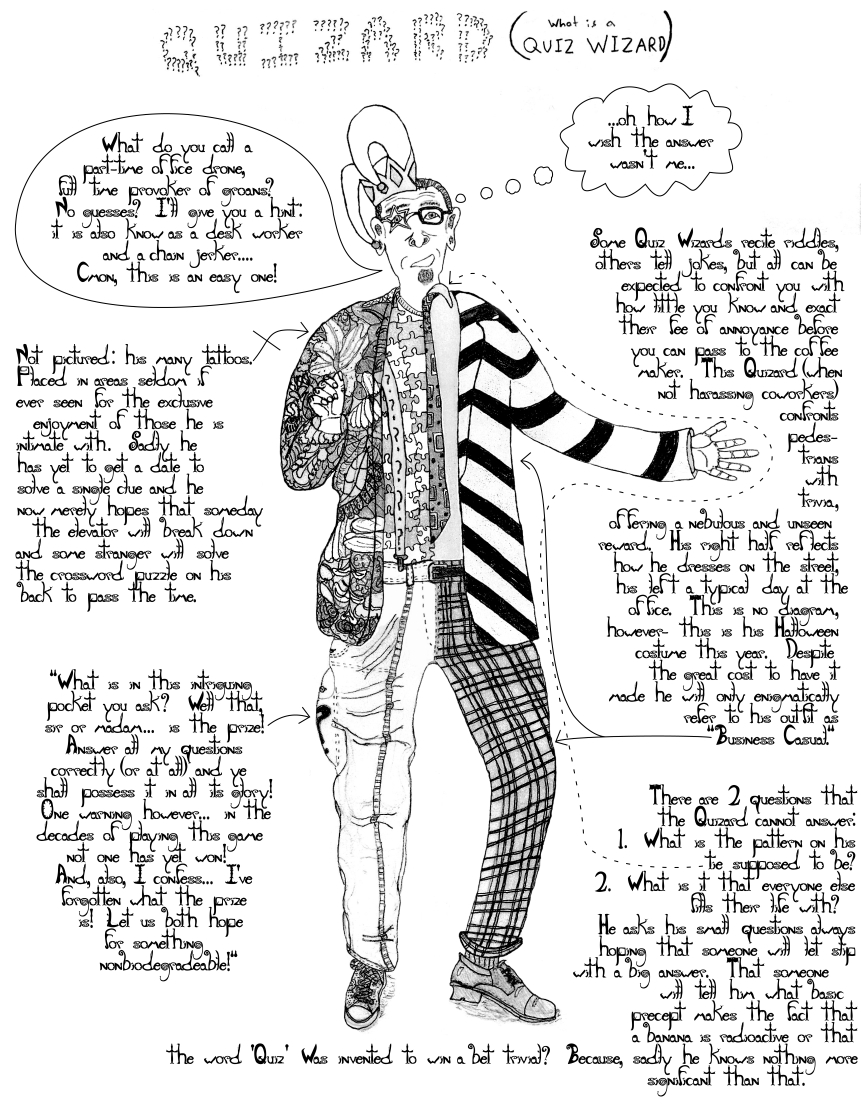 QUIZARD (What is a
QUIZ WIZARD)
What do you call a
part-time office drone,
full time provoker of groans?
No guesses? I'll give you a hint:
it is also know as a desk worker
and a chain jerker....
Cmon, this is an easy one!
...oh how I
wish the answer
wasn't me...
Some Quiz Wizards recite riddles,
others tell jokes, but all can be
expected to confront you with
how little you know and exact
their fee of annoyance before
you can pass to the coffee
maker. This Quizard (when
not harassing coworkers)
confronts
pedes-
trians
with
trivia,
offering a nebulous and unseen
reward. His right half reflects
how he dresses on the street,
his left a typical day at the
office. This is no diagram,
however- this is his Halloween
costume this year. Despite
the great cost to have it
made he will only enigmatically
refer to his outfit as
"Business Casual."
Not pictured: his many tattoos.
Placed in areas seldom if
ever seen for the exclusive
enjoyment of those he is
intimate with. Sadly he
has yet to get a date to
solve a single clue and he
now merely hopes that someday
the elevator will break down
and some stranger will solve
the crossword puzzle on his
back to pass the time.
"What is in this intriguing
pocket you ask? Well that,
sir or madam... is the prize!
Answer all my questions
correctly (or at all) and ye
shall possess it in all its glory!
One warning however... in the
decades of playing this game
not one has yet won!
And, also, I confess... I've
forgotten what the prize
is! Let us both hope
for something
nonbiodegradeable!"
There are 2 questions that
the Quizard cannot answer:
1. What is the pattern on his
tie supposed to be?
2. What is it that everyone else
fills their life with?
He asks his small questions always
hoping that someone will let slip
with a big answer. That someone
will tell him what basic
precept makes the fact that
a banana is radioactive or that
the word 'Quiz' Was invented to win a bet trivial? Because, sadly he knows nothing more
significant than that.